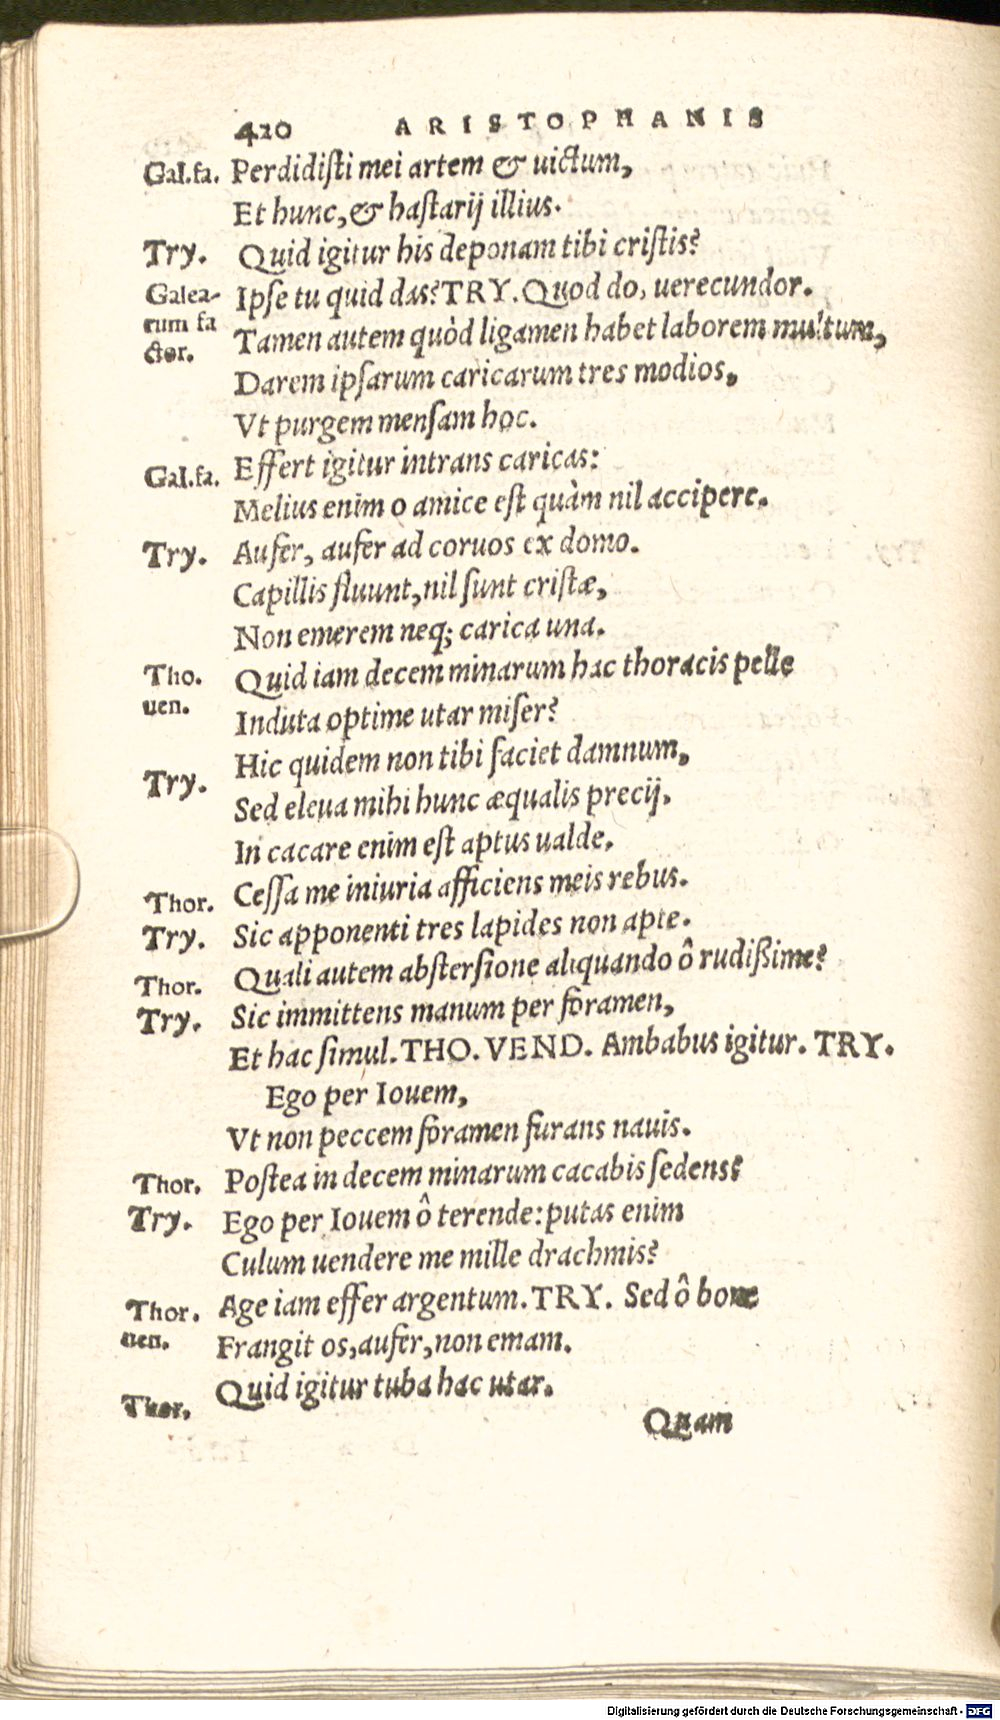 420 ARISTOPHANIS
Gal.fa. Perdidiſti mei artem & uictum,
Et hunc, & haſtarij illius.
Try. Quid igitur his deponam tibi criſtis?
Galea- Ipſe tu quid das? TRY. Quod do, uerecundor.
rum fa Tamen autem quòd ligamen habet laborem multum,
ctor. Darem ipſarum caricarum tres modios,
Vt purgem menſam hoc.
Gal.fa. Effert igitur intrans caricas:
Melius enim o amice eſt quàm nil accipere.
Try. Aufer, aufer ad coruos ex domo.
Capillis fluunt, nil ſunt criſtæ,
Non emerem neq; carica una.
Tho. Quid iam decem minarum hac thoracis pelle
uen. Induta optime utar miſer?
Try. Hic quidem non tibi faciet damnum,
Sed eleua mihi hunc æqualis precij,
In cacare enim eſt aptus ualde.
Thor. Ceſſa me iniuria afficiens meis rebus.
Try. Sic apponenti tres lapides non apte.
Thor. Quali autem abſterſione aliquando ô rudißime?
Try. Sic immittens manum per foramen,
Et hac ſimul. THO. VEND. Ambabus igitur. TRY.
Ego per Iouem,
Vt non peccem foramen furans nauis.
Thor. Poſtea in decem minarum cacabis ſedens?
Try. Ego per Iouem ô terende: putas enim
Culum uendere me mille drachmis?
Thor. Age iam effer argentum. TRY. Sed ô bone
uen. Frangit os, aufer, non emam.
Thor. Quid igitur tuba hac utar.
Quam
Digitalisierung gefördert durch die Deutsche Forschungsgemeinschaft - DFG